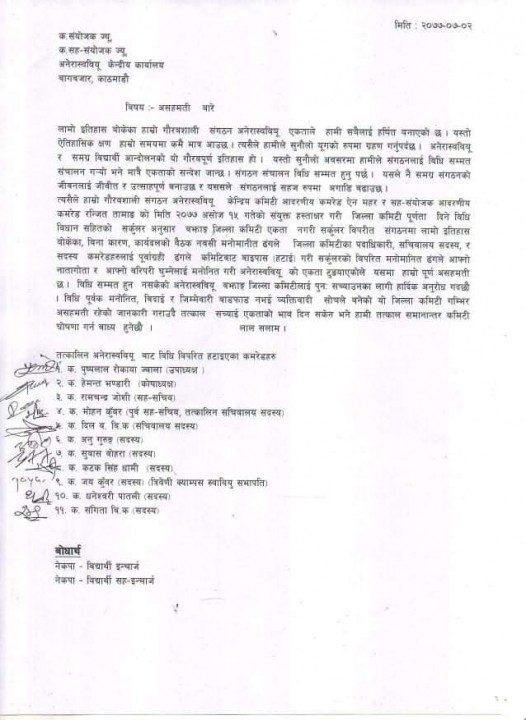 मिति : २०७७-०७-०२
क.संयोजक ज्यू,
क.सह-संयोजक ज्यू
अनेरास्ववियू केन्द्रीय कार्यालय
बागबजार, काठमाडौ
विषय :- असहमती बारे
लामो इतिहास बोकेका हाम्रो गौरवशाली संगठन अनेरास्ववियू एकताले हामी सवैलाई हर्षित बनाएको छ । यस्तो
ऐतिहासिक क्षण हाम्रो समयमा कमै मात्र आउछ । त्यसैले हामीले सुनौलो यूगको रुपमा ग्रहण गर्नुपर्दछ । अनेरास्ववियू
र समग्र विद्यार्थी आन्दोलनको यो गौरवपूर्ण इतिहास हो । यस्तो सुनौलो अवसरमा हामीले संगठनलाई विधि सम्मत
संचालन गर्यो भने मात्रै एकताको सन्देश जान्छ । संगठन संचालन विधि सम्मत हुनु पर्छ । यसले नै समग्र संगठनको
जीवनलाई जीवीत र उत्साहपूर्ण बनाउछ र यससले संगठनलाई सहज रुपमा अगाडि बढाउछ ।
त्यसैले हाम्रो गौरवशाली संगठन अनेरास्ववियू केन्द्रिय कमिटी आदरणीय कमरेड ऐन महर र सह-संयोजक आदरणीय
कमरेड रन्जित तामाङ को मिति २०७७ असोज १५ गतेको संयुक्त हस्ताक्षर गरी जिल्ला कमिटी पूर्णता दिने विधि
विधान सहितको सर्कुलर अनुसार बझाङ्ग जिल्ला कमिटी एकता नगरी सर्कुलर विपरीत संगठनमा लामो इतिहास
बोकेका, विना कारण, कार्यदलको बैठक नवसी मनोमानीत ढंगले जिल्ला कमिटीका पदाधिकारी, सचिवालय सदस्य, र
सदस्य कमरेडहरुलाई पूर्वाग्रही ढंगले कमिटिबाट बाइपास (हटाई) गरी सर्कुलरको विपरित मनोमानित ढंगले आफ्नो
नातागोता र आफ्नो वरिपरी घुम्नेलाई मनोनित गरी अनेरास्ववियू को एकता टुङ्ग्याएकोले यसमा हाम्रो पूर्ण असहमती
छ । विधि सम्मत हुन नसकेको अनेरास्ववियू बझाङ्ग जिल्ला कमिटीलाई पुन: सच्याउनका लागी हार्दिक अनुरोध गदछौ
। विधि पूर्वक मनोनित, विदाई र जिम्मेवारी बाडफाड नभई व्यक्तिवादी सोचले बनेको यो जिल्ला कमिटी गम्भिर
असहमती रहेको जानकारी गराउदै तत्काल सच्याई एकताको भाव दिन सकेन भने हामी तत्काल समानान्तर कमिटी
घोषणा गर्न बाध्य हुनेछौ । लाल सलाम ।
तत्कालिन अनेरास्ववियू बाट विधि विपरित हटाइएका कमरेडहरु
१ क. पुष्पलाल रोकाया ज्वाला (उपाध्यक्ष )
२ क. हेमन्त भण्डारी (कोषाध्यक्ष)
३ क. रामचन्द्र जोशी (सह-सचिव)
४. क. मोहन कुँवर (पुर्व सह-सचिव, तत्कालिन सचिवालय सदस्य)
५ क. दिल ब. बि.क (सचिवालय सदस्य)
६ क. अनु गुरुङ (सदस्य)
७ क. सुवास बोहरा (सदस्य)
८ क. कटक सिंह धामी (सदस्य)
९ क. जय कुँवर (सदस्य) (त्रिवेणी क्याम्पस स्वावियु सभापति)
१०. क. धनेश्वरी पातली (सदस्य)
११. क. संगिता बि.क (सदस्य)
बोधार्थ
नेकपा - विद्यार्थी इन्चार्ज
नेकपा - विद्यार्थी सह-इन्चार्ज